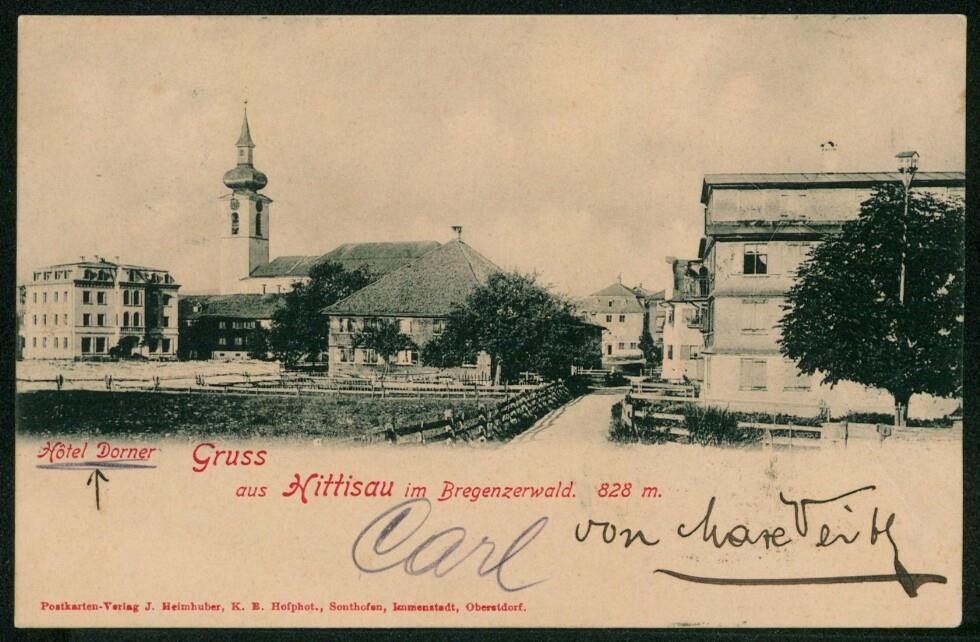 Hôtel Dorner
Gruss
aus Hittisau im Bregenzerwald. 828 m.
Carl
von
Postkarten-Verlag J. Heimhuber, K. B. Hofphot., Sonthofen, Immenstadt, Oberstdorf.